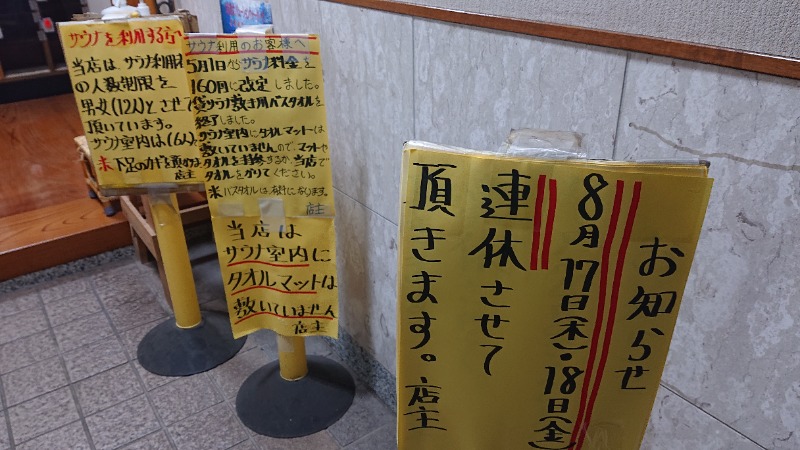 サウナを利用する
当店は、サウナ利用
の人数制限を
男女(12人)とさせて
頂いています。
サウナ室内は(6人)
店主
サウナ利用のお客様へ
5月1日からサウナ料金を
160円に改定しました。
貸サウナ敷き用バスタオルを
終了しました。
サウナ室内にタオルマットは
敷いていませんので、マットや
タオルを持参するか、当店で
タオルをかりてください。
店主
当店は
サウナ室内に
タオルマットは
敷いていません
店主
お知らせ
8月17日(木)・18日(金)
連休させて
頂きます。店主